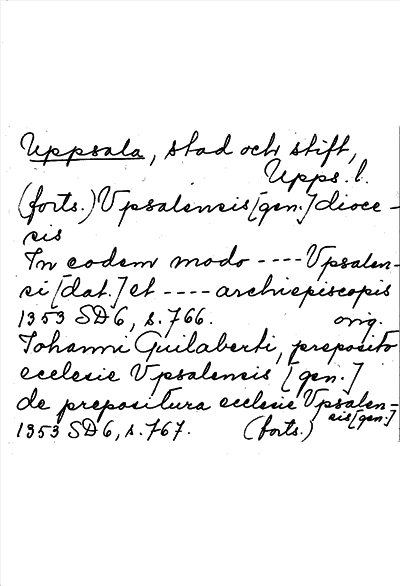 Uppsala, stad och stift,
Upps. l.
(forts.) Vpsalensis [gen.] dioce-
sis
In eodem modo ---- Vpsalen-
si [dat.] et ---- archiepiscopis
1353 SD6, s. 766. orig.
Iohanni Guilaberti, preposito
ecclesie Vpsalensis [gen.]
de prepositura ecclesie Vpsalen-
sis [gen.]
1353 SD6, s. 767. (forts.)